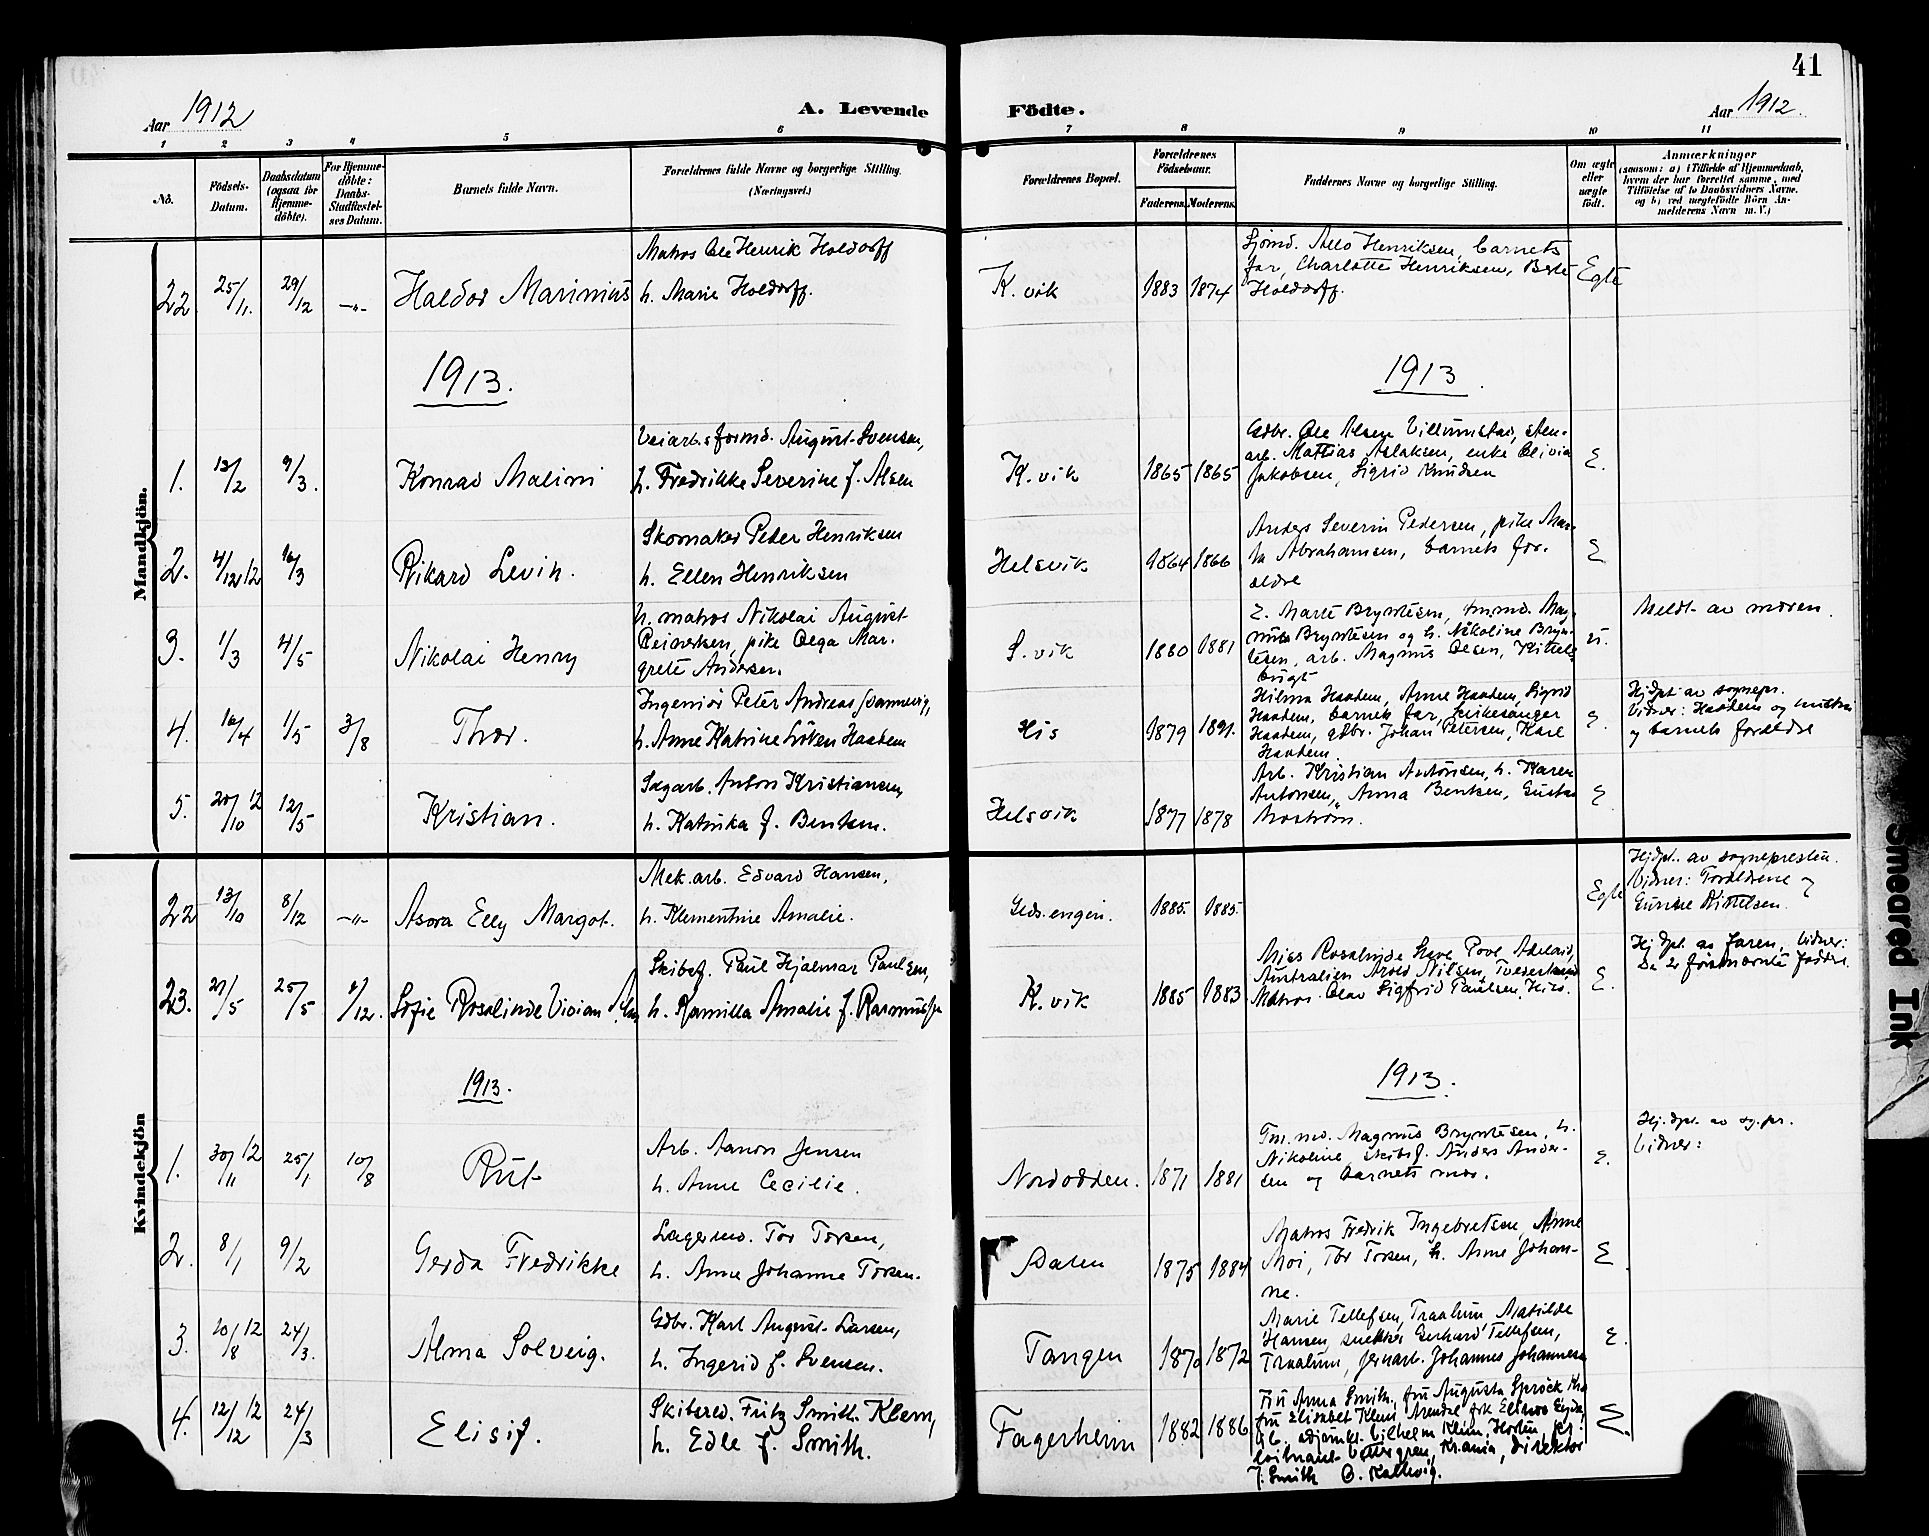 41
Aar 1912
A. Levende
Födte.
Aar 1912.
1 2 3 4 5 6 7 8 9 10 11
No.
Födsels-
Datum.
Daabsdatum
(ogsaa for
Hjemme-
döbte).
For Hjemme-
döbte:
Daabs-
Stadfæstel-
ses Datum.
Barnets fulde Navn.
Forældrenes fulde Navne og borgerlige Stilling.
(Næringsvei.)
Forældrenes Bopæl.
Forældrenes
Födselsaar.
Faderens. Moderens.
Faddernes Navne og borgerlige Stilling.
Om ægte
eller
uægte
födt.
Anmærkninger
(saasom: a) i Tilfælde af Hjemmedaab,
hvem der har forrettet samme, med
Tilföielse af to Daabsvidners Navne.
og b) ved uægtefödte Börn An-
melderens Navn m. V.)
Mandkjön.
22. 25/11. 29/12 -"- Haldor Marinius
Matros Ole Henrik Holdorff
h. Marie Holdorff.
K.vik 1883 1874
Henriksen, barnets
far, Charlotte Henriksen,
Holdorff.
Egte
1913.
1913.
1. 12/2 9/3. Konrad Malini
Veiarb.sformd. August Svensen,
h. Fredrikke Severine f. Alsen
K.vik 1865 1865
Gdbr. Ole Alsen
arb. Mattias Aslaksen, enke Olivia
Jakobsen, Sigrid Knudsen
E.
2. 4/12 12 16/3 Rikard Levin.
Skomaker Peder Henriksen
h. Ellen Henriksen
Helsvik 1864 1866
Anders Severin Pedersen, pike Mar-
ta Abrahamsen, barnets for-
ældre
E
3. 1/3 4/5 Nikolai Henry
u. matros Nikolai August
Reinertsen, pike Olga Mar-
grete Andersen.
S.vik 1880 1881
E. Marte Bryntesen, tmmd. Mag-
nus Bryntesen og h. Nikoline Bryn-
tesen, arb. Magnus Olsen, Kittels-
bugt
u.
Meldt av moren.
4. 16/4 1/5 3/8 Thor.
Ingeniör Peter Andreas Dannevig,
h. Anne Katrine Löken Haadem
His 1879 1891.
Hilma Haadem, Anne Haadem, Sigrid
Haadem, barnets far, kirkesanger
Haadem, gdbr. Johan Petersen, Kare
Haadem.
E.
Hjdpt av sognepr.
Vidner: Haadem og hustru
og barnets forældre
5. 20/10 12 12/5 Kristian.
Sagarb. Anton Kristiansen,
h. Katinka f. Bentsen.
Helsvik 1877 1878
Arb. Kristian Antonsen, h. Karen
Antonsen, Anna Bentsen, Gustav
Moström.
E
Kvindekjön
22 13/10 8/12 -"- Asora Elly Margot.
Mek.arb. Edvard Hansen,
h. Klementine Amalie.
1885. 1885.
Egte
Hjdpt. av sognepresten.
Vidner: Forældrene og
Gunne Kittelsen.
23. 21/5 25/5 1/12. Sofie Rosalinde Vivian
Skibsf. Paul Hjalmar Paulsen,
h. Kamilla Amalie f. Rasmussen
K.vik 1885 1883
Miss Rosalinde Adelaid,
Australien Arold Nilsen, Tvedestrand
Matros Olav Sigfrid Paulsen,
E.
Hjdpt. av faren, Vidner:
De 2 förstnævnte faddre.
1913.
1913.
1. 30/11 12 25/1 10/8 Rut
Arb. Aanon Jensen
h. Anne Cecilie.
Nordodden. 1871 1881
Tm.md. Magnus Bryntesen, h.
Nikoline, skibsf. Anders Ander-
sen og barnets mor.
E.
Hj.dpt. av sg.pr.
Vidner:
2. 8/1 9/2 Gerda Fredrikke
Lagermd. Tor Torsen,
h. Anne Johanne Torsen.
Dalen 1875 1884
Matros Fredrik Ingebretsen, Anne
Moi, Tor Torsen, h. Anne Johan-
ne.
E
3. 20/8 12 24/3. Alma Solveig.
Gdbr. Karl August Larsen,
h. Ingerid f. Svensen.
Tangen 1870 1872
Marie Tellefsen, Traalum Matilde
Hansen, snekker Gerhard Tellefsen,
Traalum, jernarb. Johannes Johannesen
E.
4. 12/12 12 24/3 Elisif.
Skibsred. Fritz Smith Klem,
h. Edle f. Smith.
Fagerheim 1882 1886
Fru Anna Smith, fru Augusta
fru Elisabet Klem, Arendal
adjunkt Vilhelm Klem, Horten,
löitnant Krania, direktör
J. Smith O. Kallevig.
E.
Smeared Ink